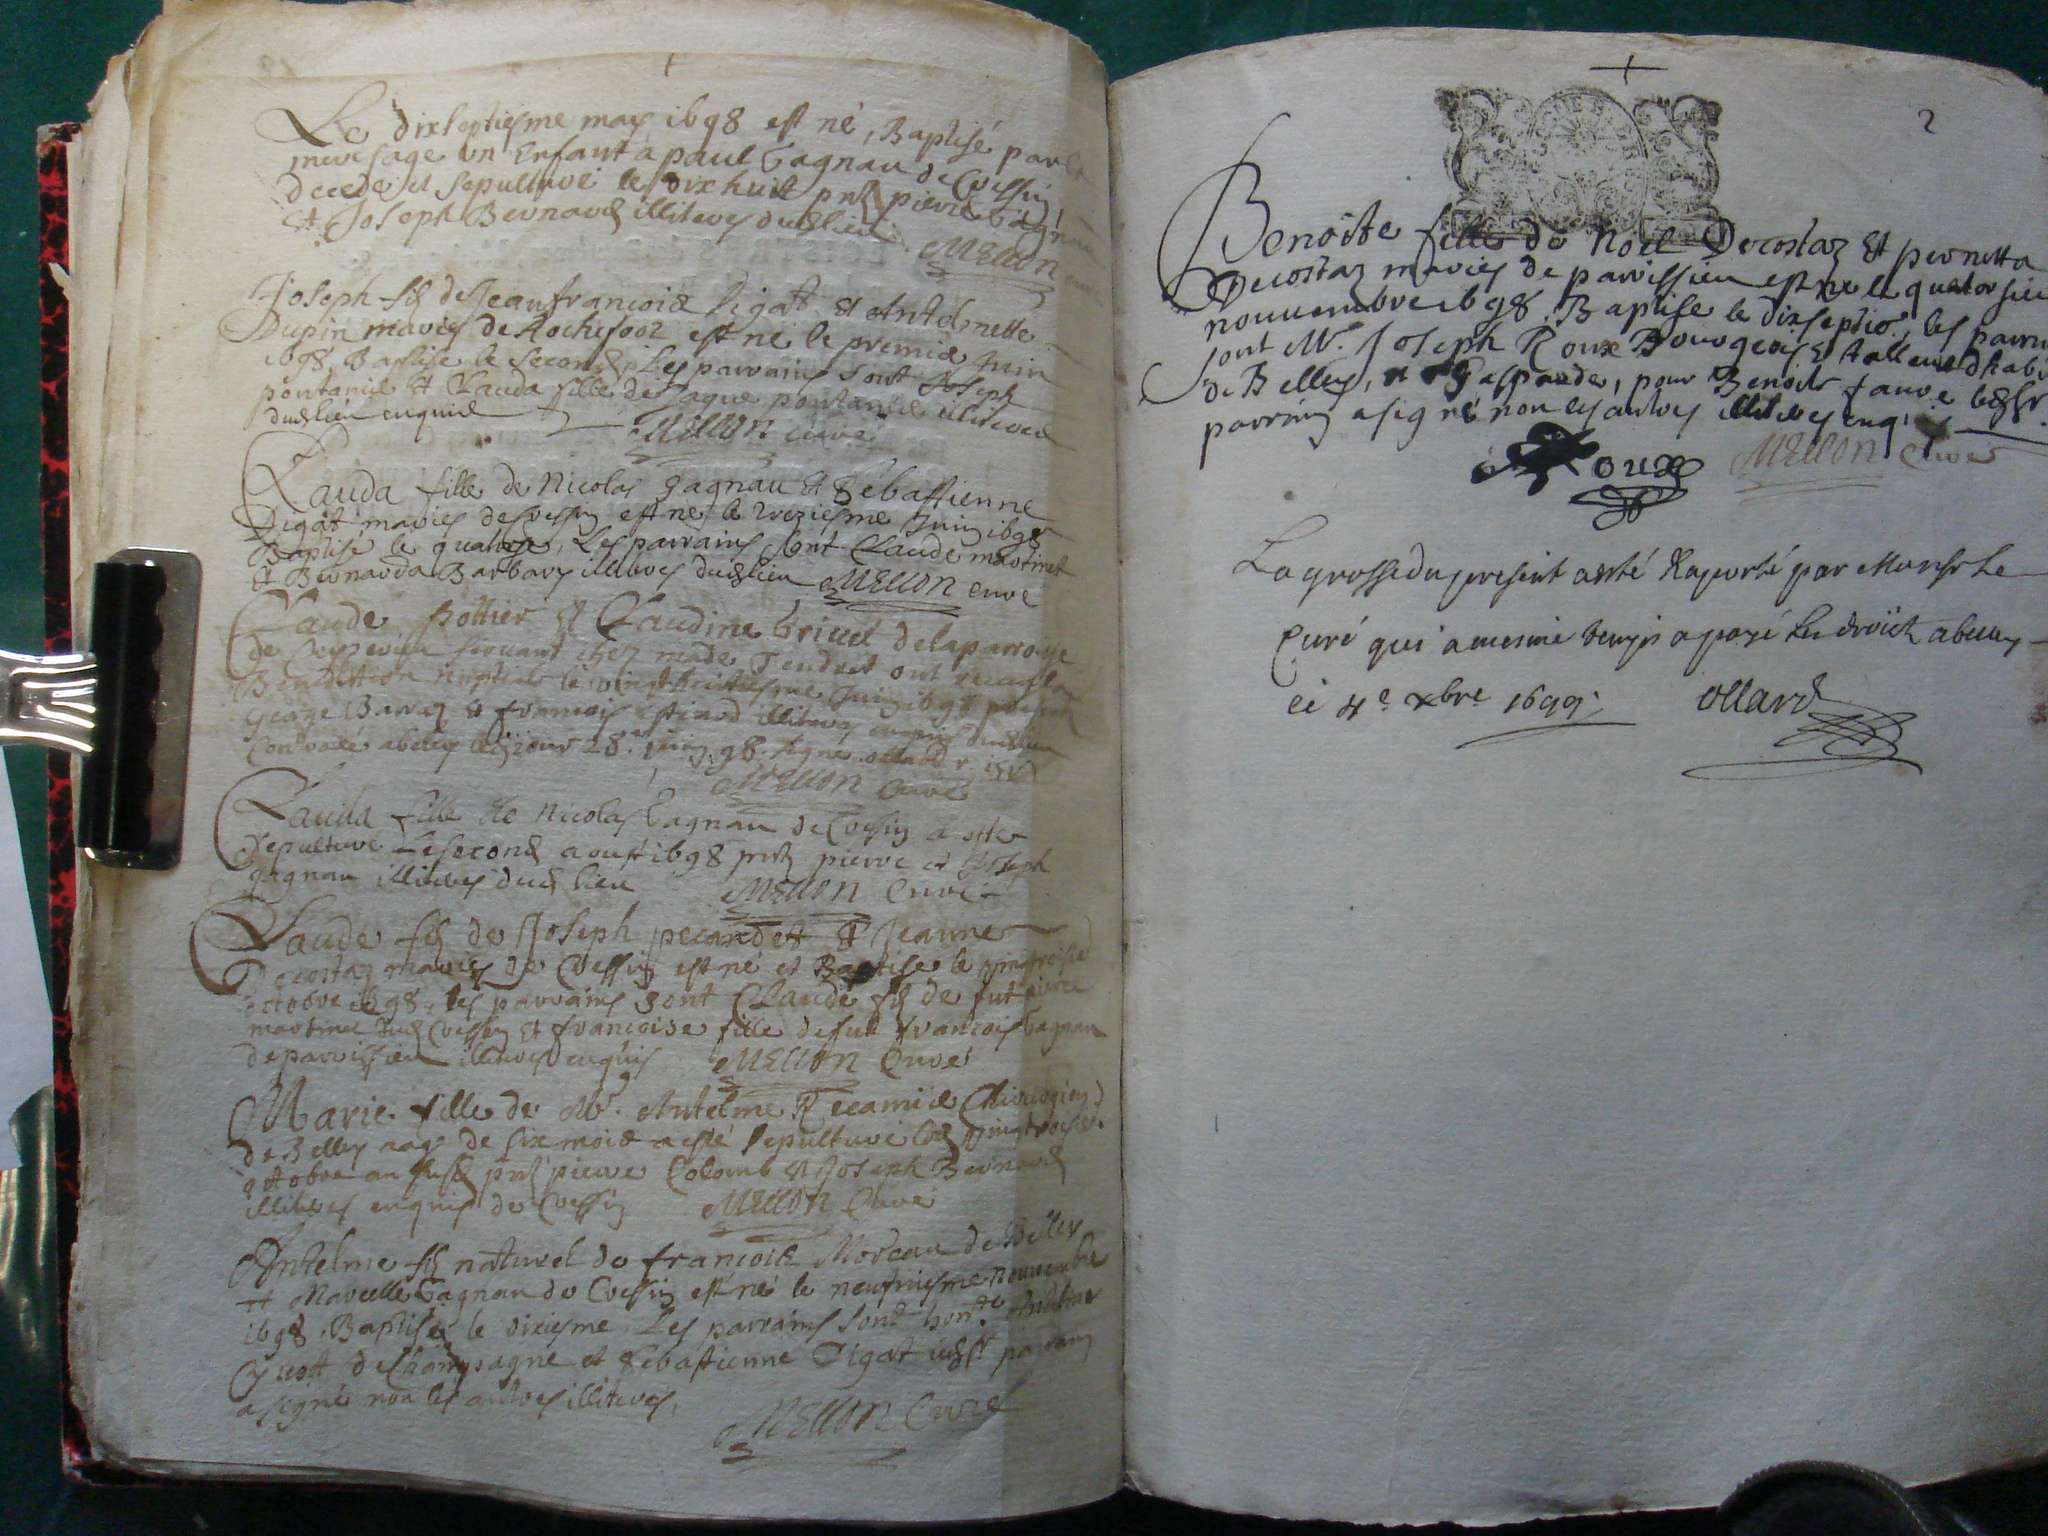 Le dixseptiesme may 1698 est né, Baptisé par la
mere sage un Enfant a paul Gagnau de Cressin,
decedé et sepulturé le dix huit pnt pierre Gagnau
Et Joseph Bernard illiteres dudlieu
MELLON curé
Joseph fils de Jeanfrancois Pigat Et Antelmette
Dupin mariés de Rochefort est né le premier Juin
1698, Baptisé le second, Les parrains sont Joseph
pontanier Et Clauda fille de Jaque pontanier illiteres
dudlieu enquis
MELLON curé
Clauda fille de Nicolas gagnau Et Sebastienne
Pigat mariés de Cressin est né le treziesme Juin 1698
Baptisé le quatorse, Les parrains sont Claude martinet
Et Bernarda Barbary illiteres dudlieu MELLON curé
Claude pottier Et Claudine Grivel delaparroisse
de servant chez made Tendret ont receu la
Benediction nuptiale le vingthuictiesme Juin 1698 present
George Barraz Et francois illiteres enquis dudlieu
Controllé abelley led jour 28e Juin 98. signé ollard
MELLON Curé
Clauda fille de Nicolas Gagnau de Cressin a este
sepulturé Lesecond aoust 1698 pnt pierre et Joseph
gagnau illiteres dud lieu MELLON Curé
Claude fils de Joseph pecandet Et Jeanne
Decostaz mariés de Cressin est né et Baptisé le vingttroisie
octobre 1698, les parrains sont Claude fils de fut pierre
martinet dud Cressin Et francoise fille defut francois Gagnau
de parvissieu illiteres enquis MELLON Curé
Marie fille de Mr. Antelme Recamier Chirurgien
de Belley aagé de six mois a esté sepulturé led vingttroisie.
octobre an susd pnt pierre Colomb et Joseph Bernard
illiteres enquis de Cressin MELLON Curé
Antelme fils naturel de francois Moreau de Belley
et Marcelle Gagnau de Cressin est né le neufviesme nouvembre
1698, Baptisé le dixiesme Les parrains sont honte Antelme
de Champagne et Sebastienne Pigat led parrain
a signé non les autres illiteres,
MELLON Curé
2
Benoite fille de Noel Decostaz Et pernetta
Decostaz mariés de parvissieu est né le quatorsie
nouvembre 1698, Baptisé le dixseptie, les parrains
sont Mr. Joseph Roux Bourgeois &
de Belley, et Gasparde, pour Benoite
parrain a signé non les autres illiteres enqs
Roux MELLON Curé
La grosse du present a esté Raporté par Monsr Le
Curé qui a mesme temps a payé Les droict abelley
ce 4e xbre 1699.
ollard